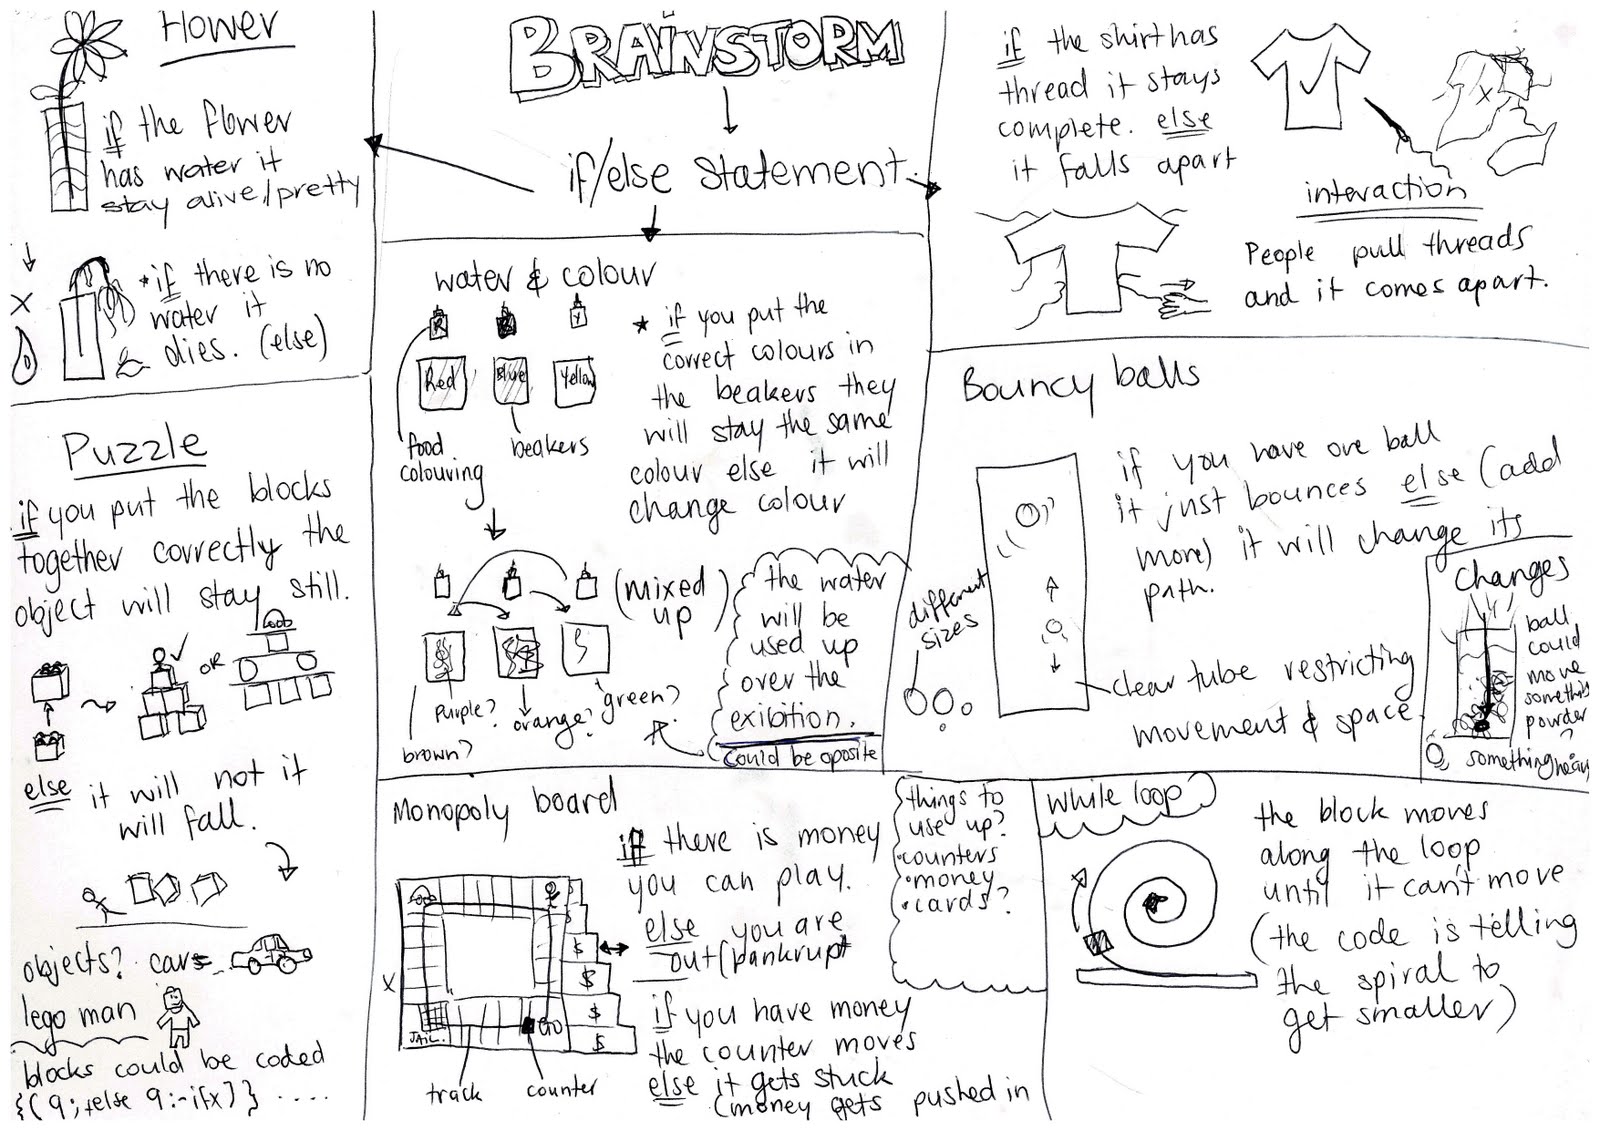 Flower
if the flower
has water it
stay alive/pretty
X
* if there is no
water it
dies. (else)
BRAINSTORM
if/else statement
if the shirt has
thread it stays
complete. else
it falls apart
X
interaction
People pull threads
and it comes apart.
water & colour
R
B
Y
Red
Blue
Yellow
food
colouring
beakers
* if you put the
correct colours in
the beakers they
will stay the same
colour else it will
change colour
(mixed
up)
brown?
purple?
orange?
green?
the water
will be
used up
over the
exibition.
could be oposite
Bouncy balls
if you have one ball
it just bounces else (add
more) it will change its
path.
different
sizes
clear tube restricting
movement & space
changes
ball
could
move
something
powder
?
something heavy
Puzzle
if you put the blocks
together correctly the
object will stay still.
OR
else it will not it
will fall.
objects? cars
lego man
blocks could be coded
Monopoly board
if there is money
you can play.
else you are
out (bankrupt
if you have money
the counter moves
else it gets stuck
(money gets pushed in
X
JAIL.
GO
$
$
$
$
track
counter
things to
use up?
•counters
•money
•cards?
while loop
the block moves
along the loop
until it can't move
(the code is telling
the spiral to
get smaller)